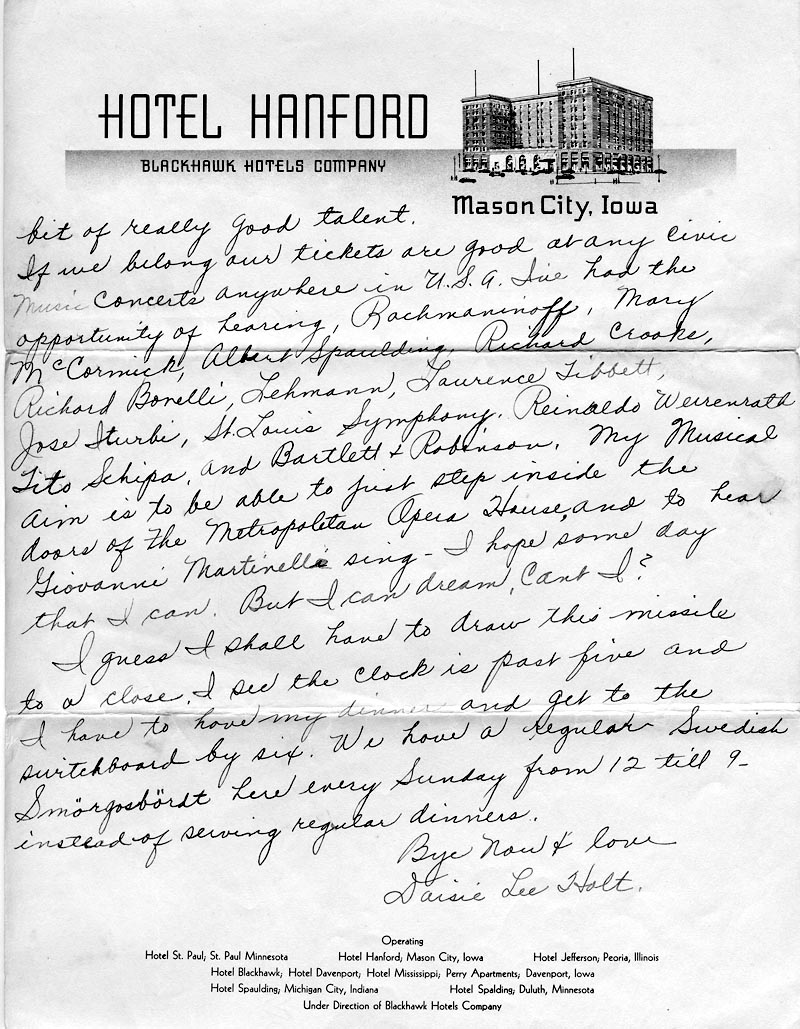 HOTEL HANFORD
BLACKHAWK HOTELS COMPANY
Mason City, Iowa
bit of really good talent.
If we belong our tickets are good at any Civic
Music Concerts anywhere in U.S.A. I've had the
opportunity of hearing, Rachmaninoff, Mary
McCormick, Albert Spaulding, Richard Crooke,
Richard Bonelli, Lehmann, Laurence Tibbett,
Jose Iturbi, St. Louis Symphony, Reinaldo Weirenrath
Tito Schipa, and Bartlett & Robinson. My Musical
aim is to be able to just step inside the
doors of the Metropolitan Opera House, and to hear
Giovanni Martinelli sing - I hope some day
that I can. But I can dream, Cant I?
I guess I shall have to draw this missile
to a close. I see the clock is past five and
I have to have my dinner and get to the
switchboard by six. We have a regular Swedish
Smörgosbördt here every Sunday from 12 till 9-
instead of serving regular dinners.
Bye Now & love
Daisie Lee Holt.
Operating
Hotel St. Paul; St. Paul Minnesota Hotel Hanford; Mason City, Iowa Hotel Jefferson; Peoria, Illinois
Hotel Blackhawk; Hotel Davenport; Hotel Mississippi; Perry Apartments; Davenport, Iowa
Hotel Spaulding; Michigan City, Indiana Hotel Spalding; Duluth, Minnesota
Under Direction of Blackhawk Hotels Company